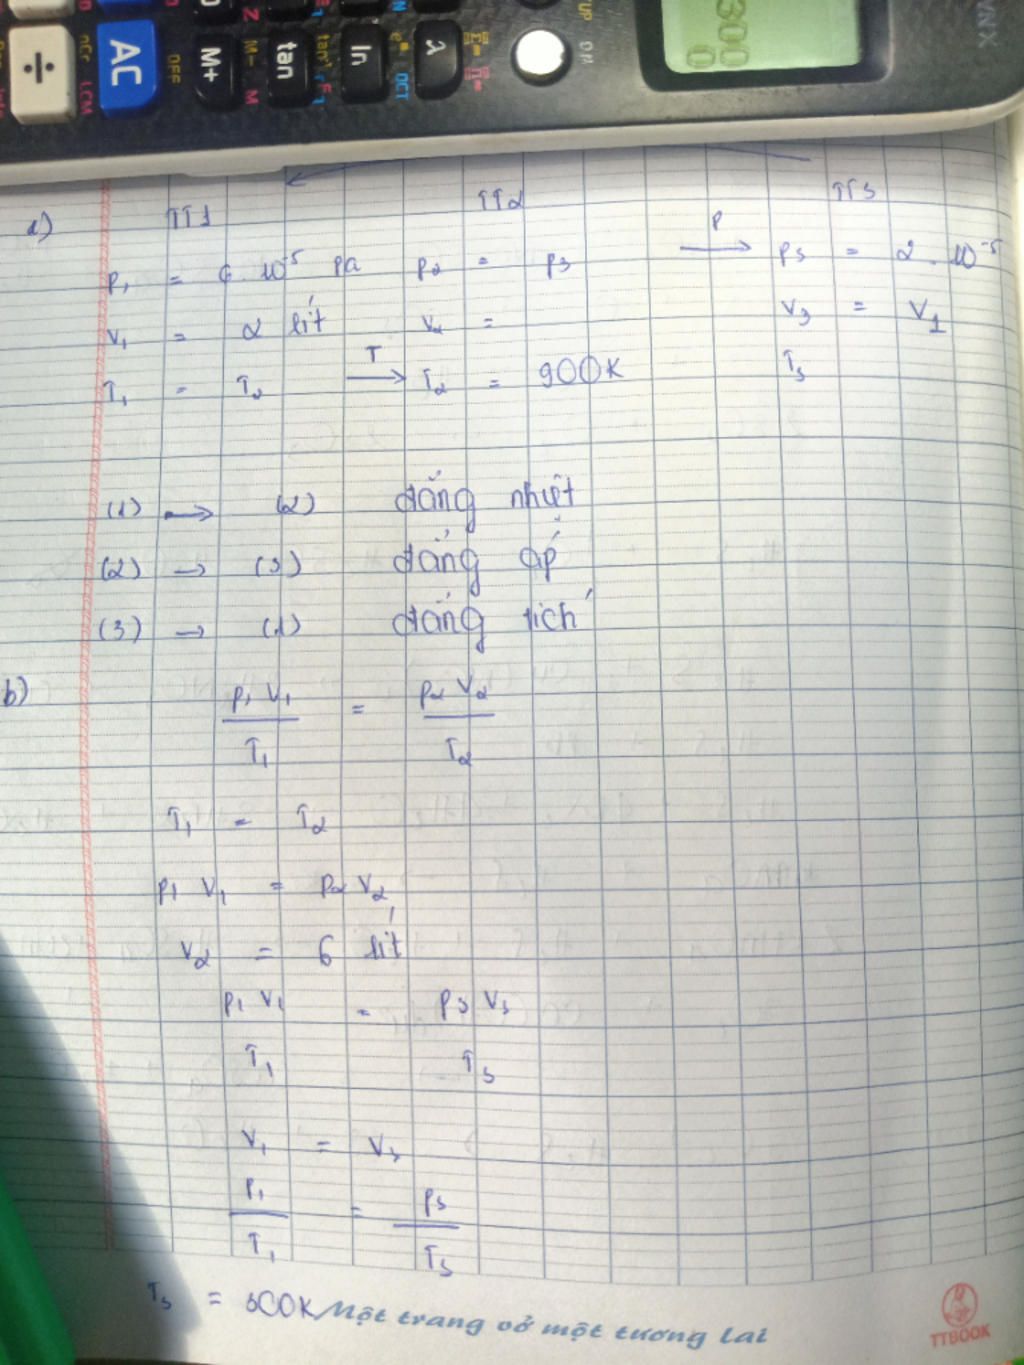 ÷ AC M+ tan ln λ
OFF M- M tan⁻¹ OCT
UP ON VNX
300
0
a) TT1 TT2 TT3
P₁ = 6 . 10⁻⁵ pa P₂ = P₃ P → P₃ = 2 . 10⁻⁵
V₁ = 2 lít V₂ = V₃ = V₁
T₁ = T₂ T → T₂ = 900K T₃
(1) → (2) đẳng nhiệt
(2) → (3) đẳng áp
(3) → (1) đẳng tích
b) P₁ V₁ / T₁ = P₂ V₂ / T₂
T₁ = T₂
P₁ V₁ = P₂ V₂
V₂ = 6 lít
P₁ V₁ = P₃ V₃
T₁ T₃
V₁ = V₃
P₁ / T₁ = P₃ / T₃
T₃ = 300K
Một trang vở một tương lai
TTBOOK